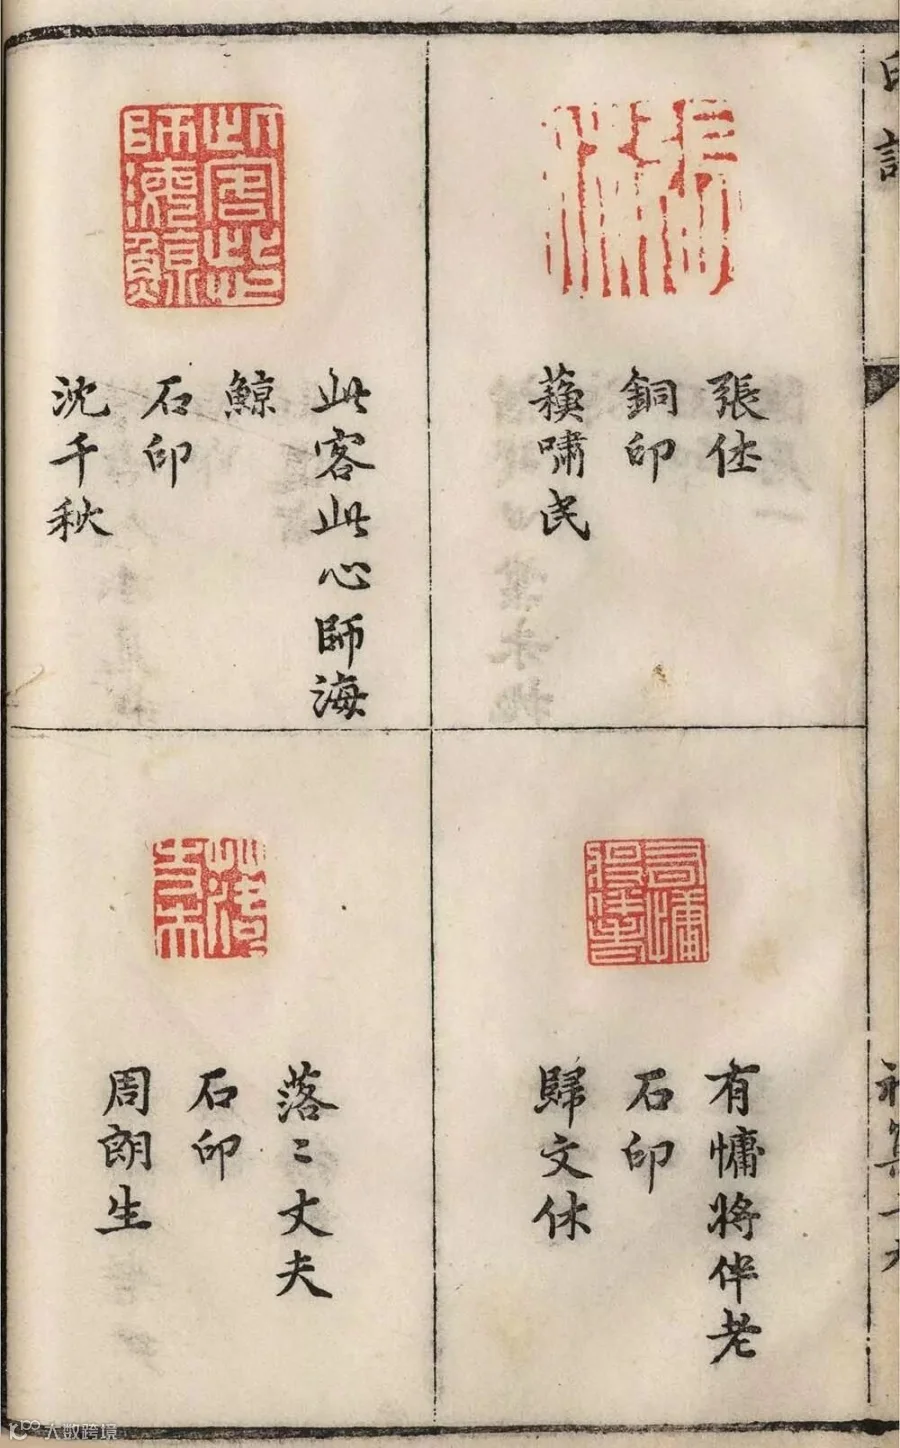 張㑉
銅印
蘓嘯民
此客此心師海
鯨
石印
沈千秋
有慵將伴老
石印
歸文休
落〻丈夫
石印
周朗生
大数跨境